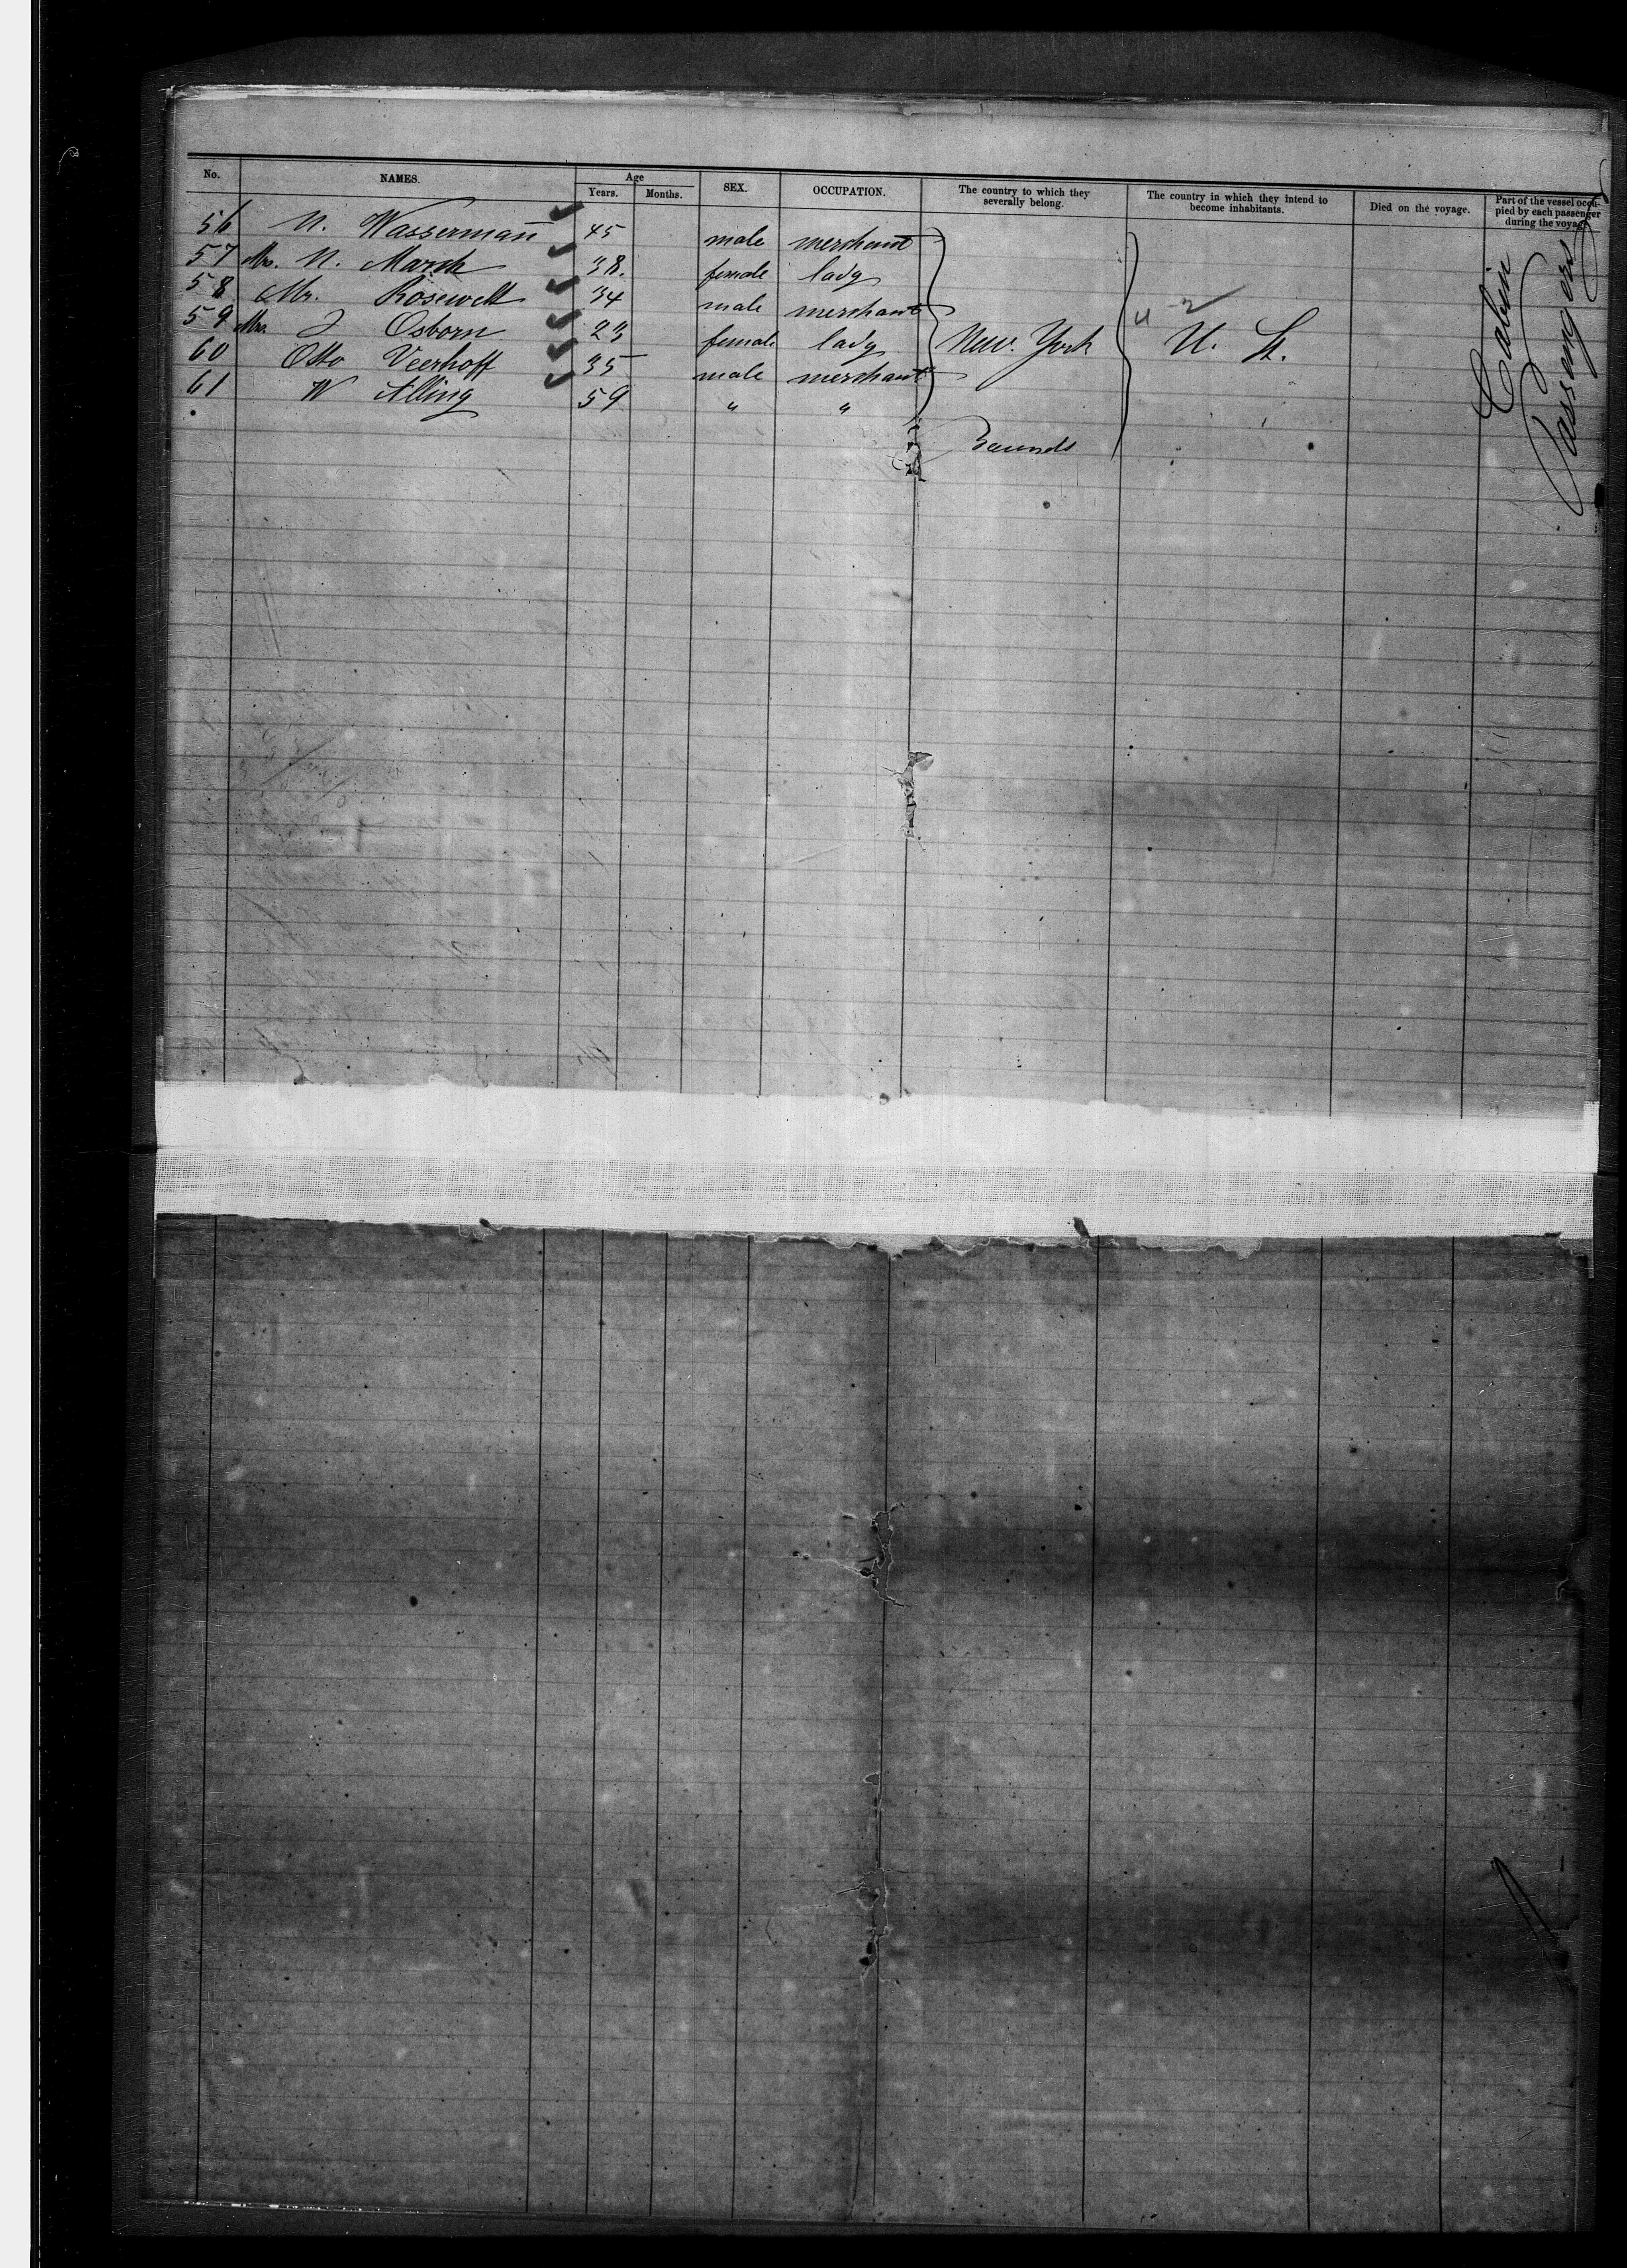 No. NAMES. Age Years. Months. SEX. OCCUPATION. The country to which they severally belong. The country in which they intend to become inhabitants. Died on the voyage. Part of the vessel occupied by each passenger during the voyage
56 N. Wasserman 45 male merchant
57 Mrs. N. March 38. female lady
58 Mr. Rosewelt 34 male merchant
59 Mrs. J Osborn 23 female lady New. York U. St.
60 Otto Veerhoff 35 male merchant
61 W Alling 59 " "
Cabin
Passengers